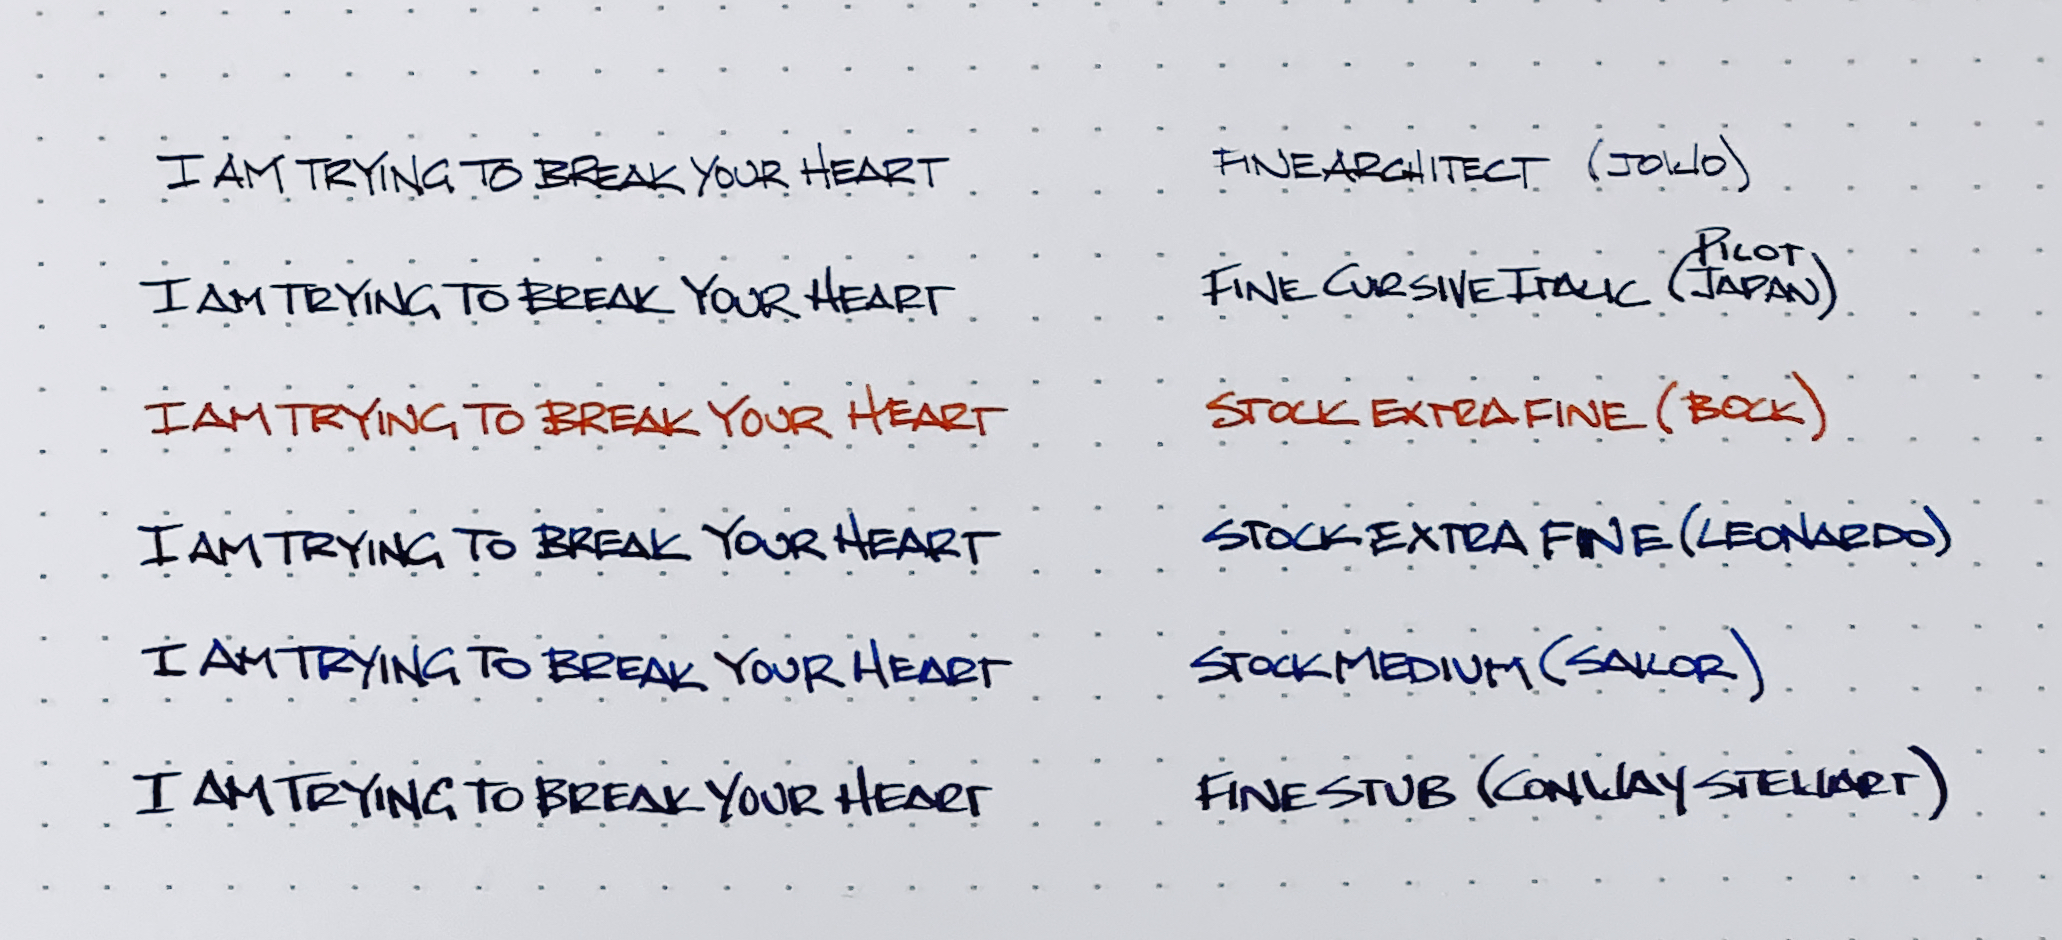 I AM TRYING TO BREAK YOUR HEART FINE ARCHITECT (JOWO)
I AM TRYING TO BREAK YOUR HEART FINE CURSIVE ITALIC (PILOT JAPAN)
I AM TRYING TO BREAK YOUR HEART STOCK EXTRA FINE (BOCK)
I AM TRYING TO BREAK YOUR HEART STOCK EXTRA FINE (LEONARDO)
I AM TRYING TO BREAK YOUR HEART STOCK MEDIUM (SAILOR)
I AM TRYING TO BREAK YOUR HEART FINE STUB (CONWAY STEWART)